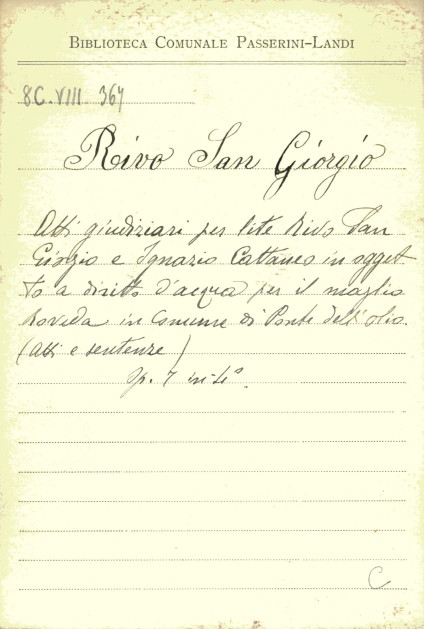 BIBLIOTECA COMUNALE PASSERINI-LANDI
8C.VIII 367
Rivo San Giorgio
Atti giudiziari per lite Rivo San
Giorgio e Ignazio Cattaneo in ogget-
to a diritto d'acqua per il maglio
Roveda in Comune di Ponte dell'olio.
(Atti e sentenze)
7 in-4°.
C